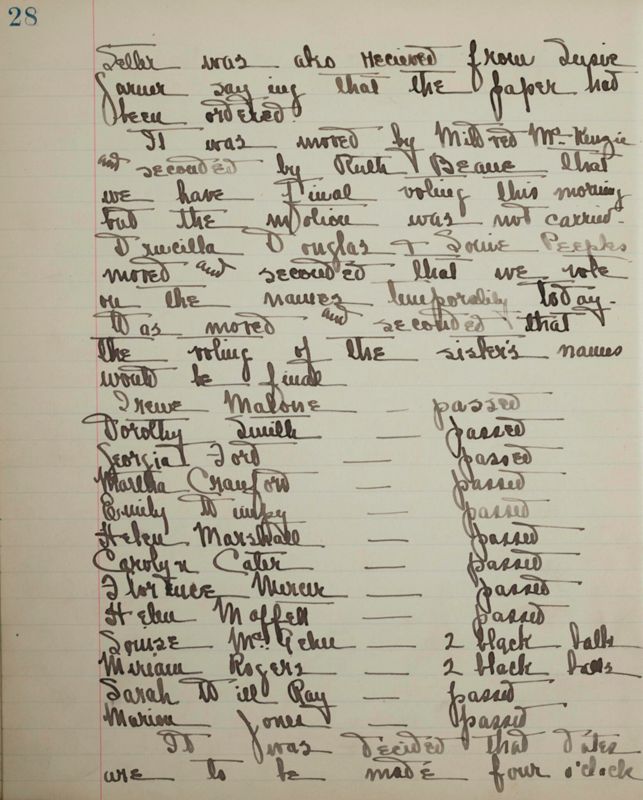 28
Letter was also recieved from Susie
Garner saying that the paper had
been ordered
It was moved by Mildred McKenzie
and seconded by Ruth Beane that
we have final voting this morning
but the motion was not carried.
Drucilla Douglas + Louise Peeples
moved and seconded that we vote
on the names temporality today.
Was moved and seconded that
the voting of the sister's names
would be final
Irene Malone — passed
Dorothy Smith — passed
Georgia Ford — passed
Martha Crawford — passed
Emily Wimpy — passed
Helen Marshall — passed
Carolyn Cater — passed
Florence Mercer — passed
Helen Moffett — passed
Louise McGehee — 2 black balls
Miriam Rogers — 2 black balls
Sarah Will Ray — passed
Marion Jones — passed
It was decided that dates
are to be made four o'clock